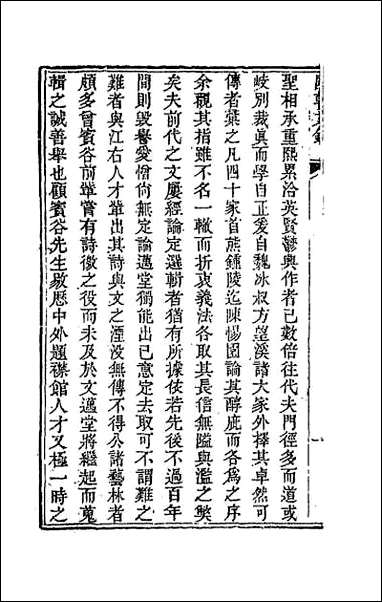 聖相承重熙累洽英賢鬱興作者已數倍往代夫門徑多而道或
岐別裁眞而學自正爰自魏冰叔方望溪諸大家外擇其卓然可
傳者彙之凡四十家首熊鍾陵迄陳惕園論其醇疵而各爲之序
余觀其指雖不名一轍而折衷義法各取其長信無隘與濫之獘
矣夫前代之文屢經論定選輯者猶有所據依若先後不過百年
間則毀譽愛憎尙無定論邁堂獨能出己意定去取可不謂難之
難者與江右人才輩出其詩與文之湮没無傳不得公諸藝林者
頗多曾賓谷前輩嘗有詩徵之役而未及於文邁堂將繼起而蒐
輯之誠善舉也顧賓谷先生敭歷中外題襟館人才又極一時之